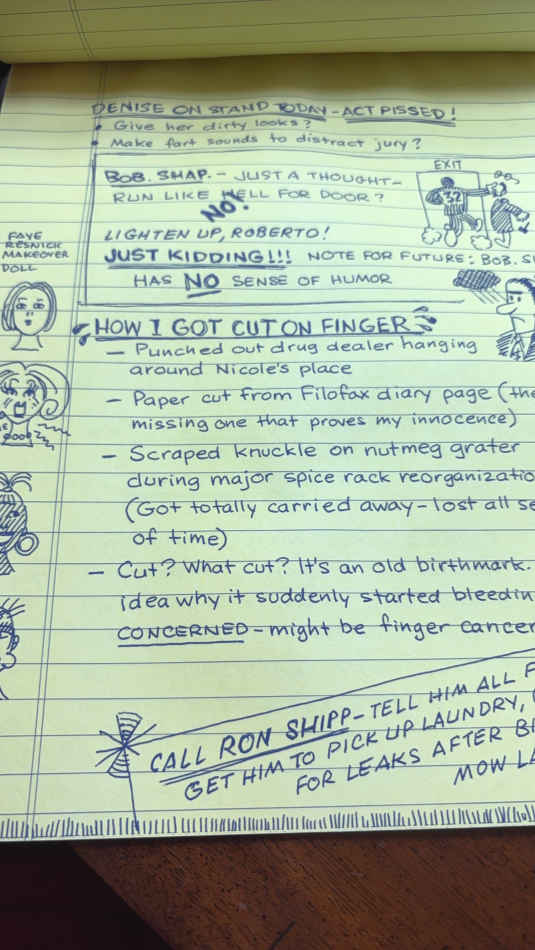 DENISE ON STAND TODAY - ACT PISSED!
• Give her dirty looks?
• Make fart sounds to distract jury?
EXIT
32
BOB. SHAP. - JUST A THOUGHT -
RUN LIKE HELL FOR DOOR?
NO!
LIGHTEN UP, ROBERTO!
JUST KIDDING!!! NOTE FOR FUTURE: BOB. S
HAS NO SENSE OF HUMOR
FAYE
RESNICK
MAKEOVER
DOLL
HOW I GOT CUT ON FINGER
— Punched out drug dealer hanging
around Nicole's place
— Paper cut from Filofax diary page (the
missing one that proves my innocence)
— Scraped knuckle on nutmeg grater
during major spice rack reorganizatio
(Got totally carried away - lost all se
of time)
— Cut? What cut? It's an old birthmark.
idea why it suddenly started bleedin
CONCERNED - might be finger cancer
CALL RON SHIPP - TELL HIM ALL F
GET HIM TO PICK UP LAUNDRY,
FOR LEAKS AFTER B
MOW LA